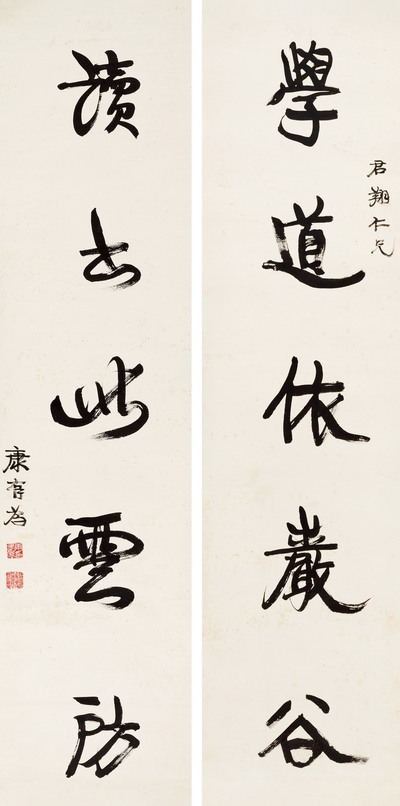 學道依巖谷
君翔仁兄
讀書此雲房
康有為